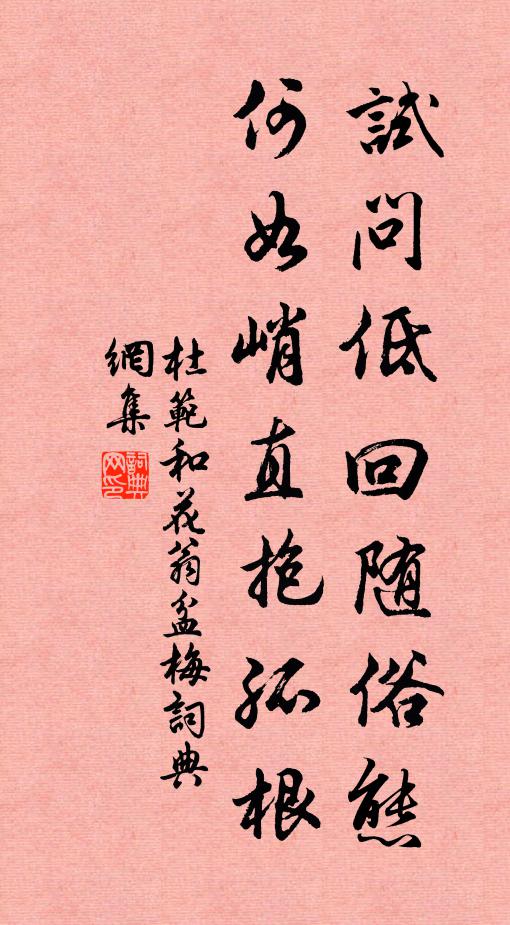 試問低回随俗態
何如峭直抱孤根
杜範和花翁盆梅詞典
網集
詞典
网印